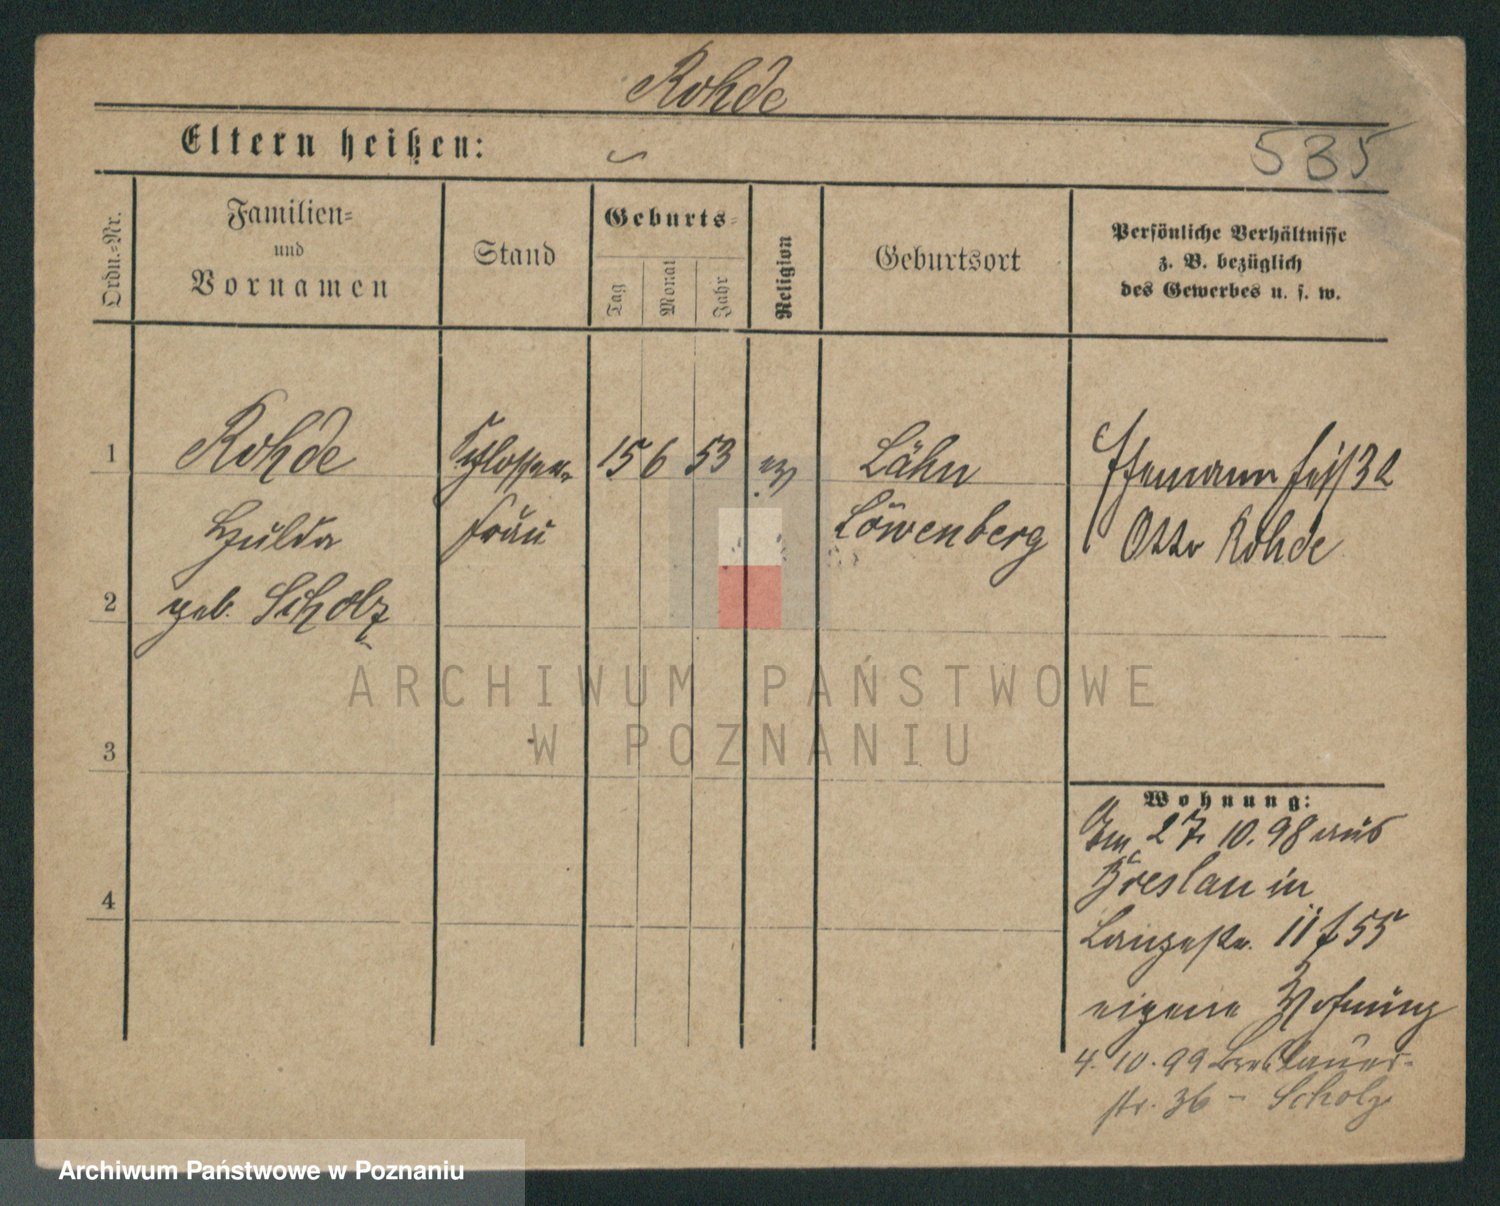 Rohde
Eltern heißen:
535
Ordn.-Nr.
Familien-
und
Vornamen
Stand
Geburts-
Tag
Monat
Jahr
Religion
Geburtsort
Persönliche Verhältnisse
z. B. bezüglich
des Gewerbes u. s. w.
1
Rohde
Schlosser-
15 6 53
ev
Lähn
Ehemann heißt
Hulda
frau
Löwenberg
Otto Rohde
2
geb. Scholz
ARCHIWUM PAŃSTWOWE
W POZNANIU
3
Wohnung:
Am 27. 10. 98 aus
Breslau in
4
Langestr. 11 55
eigene Wohnung
4. 10. 99 Breslauer-
str. 36 - Scholz
Archiwum Państwowe w Poznaniu